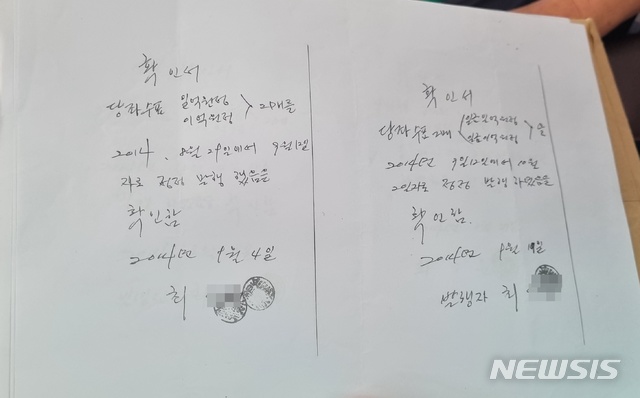 확인서
당좌수표 일억원정 > 2매를
이억원정
2014. 8월 29일에서 9월 12일
자로 정정 발행 했음을
확인함
2014년 9월 4일
최
확인서
당좌수표 2매 <일금일억원정> 을
일금이억원정
2014년 9월 12일에서 10월
2일자로 정정 발행 하였음을
확인함.
2014년 9월 일
발행자 최
NEWSIS